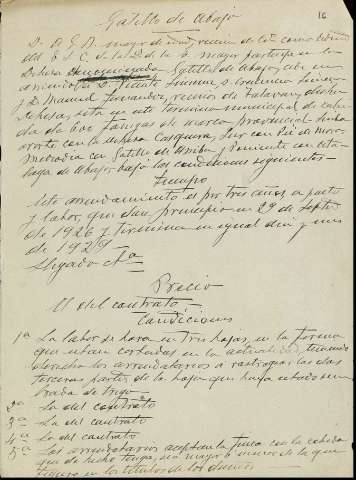 Gatillo de Abajo
16
D. A. G. D. mayor de edad, vecino de
del E. S. C. de la D. de la O. mayor partícipe en la
Dehesa Gatillo de Abajo, sobre en
arriendo a D. Justo Jiménez
y D. Manuel Fernandez, vecinos de Talavan, dicha
Dehesa, sita en este termino municipal de cabi-
da de 600 fanegas de marco provincial, linda
Norte con la dehesa Casquera, Sur con
Mediodia con Gatillo de Arriba y Poniente con
de Abajo, bajo las condiciones siguientes
Tiempo
Este arrendamiento es por tres años, a pasto
y labor, que dan principio en 29 de Septbre
de 1926 y termina en igual dia y mes
de 1929.
Precio
El del contrato
Condiciones
1ª La labor se hara en tres hojas, en la forma
que estan cortadas en la actualidad, teniendo
derecho los arrendatarios a rastrojear las dos
terceras partes de la hoja que haya estado sem-
brada de trigo
2ª La del contrato
3ª La del contrato
4ª La del contrato
5ª Los arrendatarios aceptan la finca con la cabida
que de hecho tenga, sea mayor o menor de la que
figura en los titulos de los dueños